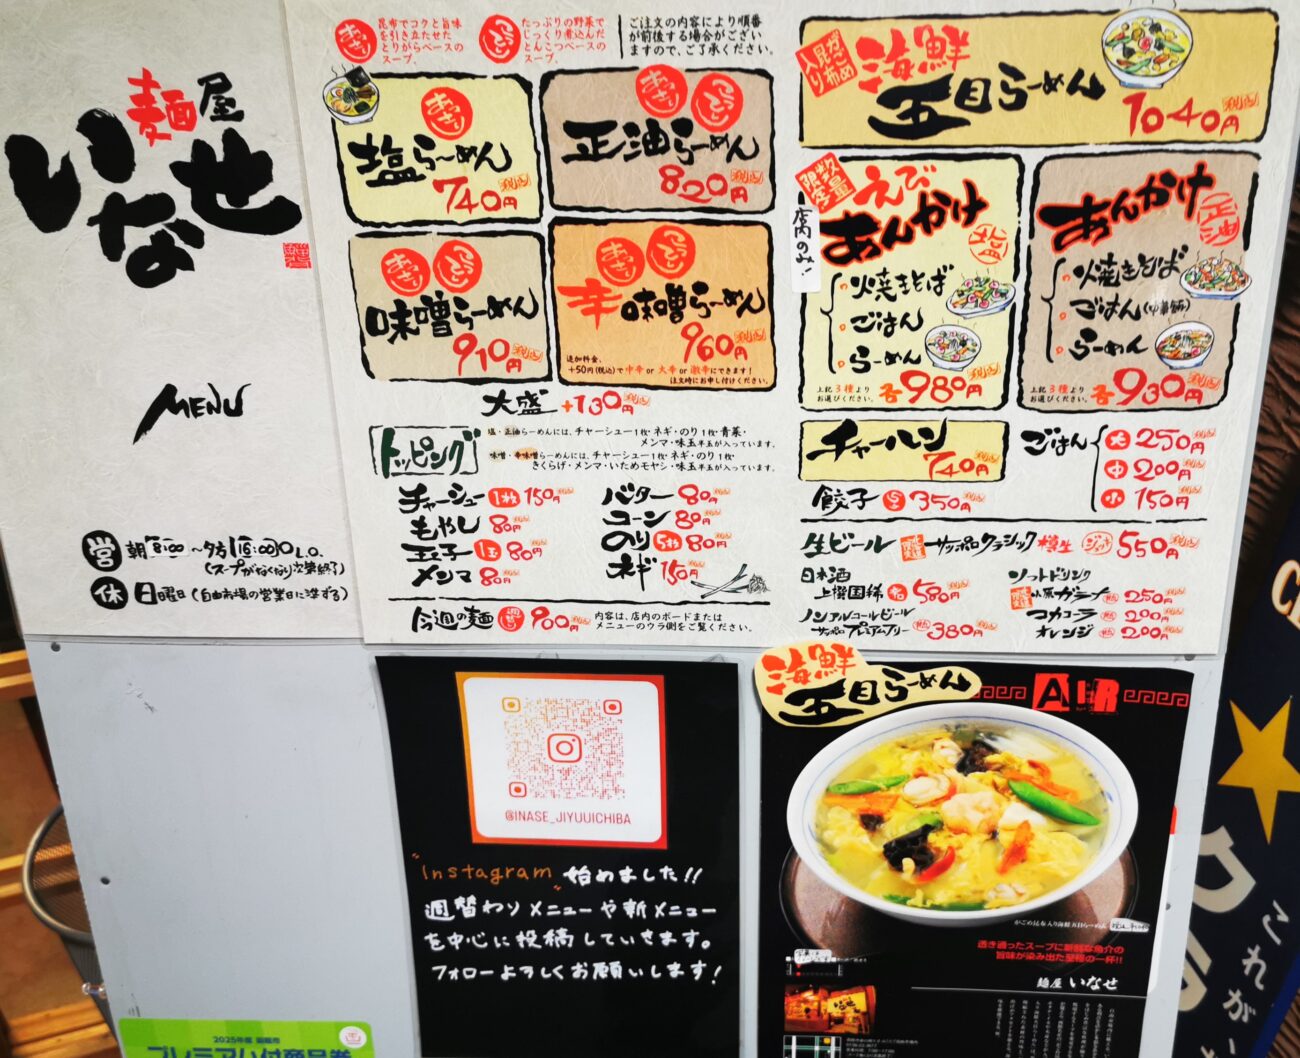 麺屋
いなせ
MENU
営 朝8:00〜夕方16:00 L.O.
(スープがなくなり次第終了)
休 日曜日(自由市場の営業日に準ずる)
あっさり
昆布でコクと旨味
を引き立たせた
とりがらベースの
スープ。
こってり
たっぷりの野菜で
じっくり煮込んだ
とんこつベースの
スープ。
ご注文の内容により順番
が前後する場合がござい
ますので、ご了承ください。
あっさり
塩らーめん
740円 税込
あっさり こってり
正油らーめん
820円 税込
あっさり こってり
味噌らーめん
910円 税込
あっさり こってり
辛味噌らーめん
960円 税込
追加料金、
+50円(税込)で中辛 or 大辛 or 激辛にできます!
注文時にお申し付けください。
大盛+130円 税込
トッピング
塩・正油らーめんには、チャーシュー1枚・ネギ・のり1枚・青菜・
メンマ・味玉半玉が入っています。
味噌・辛味噌らーめんには、チャーシュー1枚・ネギ・のり1枚・
きくらげ・メンマ・いためモヤシ・味玉半玉が入っています。
チャーシュー 1枚 150円 税込
もやし 80円 税込
玉子 1玉 80円 税込
メンマ 80円 税込
バター 80円 税込
コーン 80円 税込
のり 5枚 80円 税込
ネギ 150円 税込
今週の麺 週替り 900円 税込
内容は、店内のボードまたは
メニューのウラ側をご覧ください。
がごめ昆布入り
海鮮
五目らーめん
1040円 税込
数量限定
店内のみ!
えび
あんかけ 塩
焼きそば
ごはん
らーめん
上記3種より
お選びください。
各980円 税込
あんかけ 正油
焼きそば
ごはん(中華飯)
らーめん
上記3種より
お選びください。
各930円 税込
チャーハン
740円 税込
ごはん
大 250円 税込
中 200円 税込
小 150円 税込
餃子 5コ 350円 税込
生ビール 北海道限定 サッポロクラシック 樽生 ジョッキ 550円 税込
日本酒
上撰国稀 580円 税込
ノンアルコールビール
サッポロプレミアムフリー 380円 税込
ソフトドリンク
小原ガラナ 250円 税込
コカコーラ 200円 税込
オレンジ 200円 税込
@INASE_JIYUUICHIBA
"Instagram"始めました!!
週替わりメニューや新メニュー
を中心に投稿していきます。
フォローよろしくお願いします!
海鮮
五目らーめん
AIR
がごめ昆布入り海鮮五目らーめん
透き通ったスープに新鮮な魚介の
旨味が染み出た至極の一杯!!
麺屋 いなせ
2025年度
プレミアム付商品券
これがい